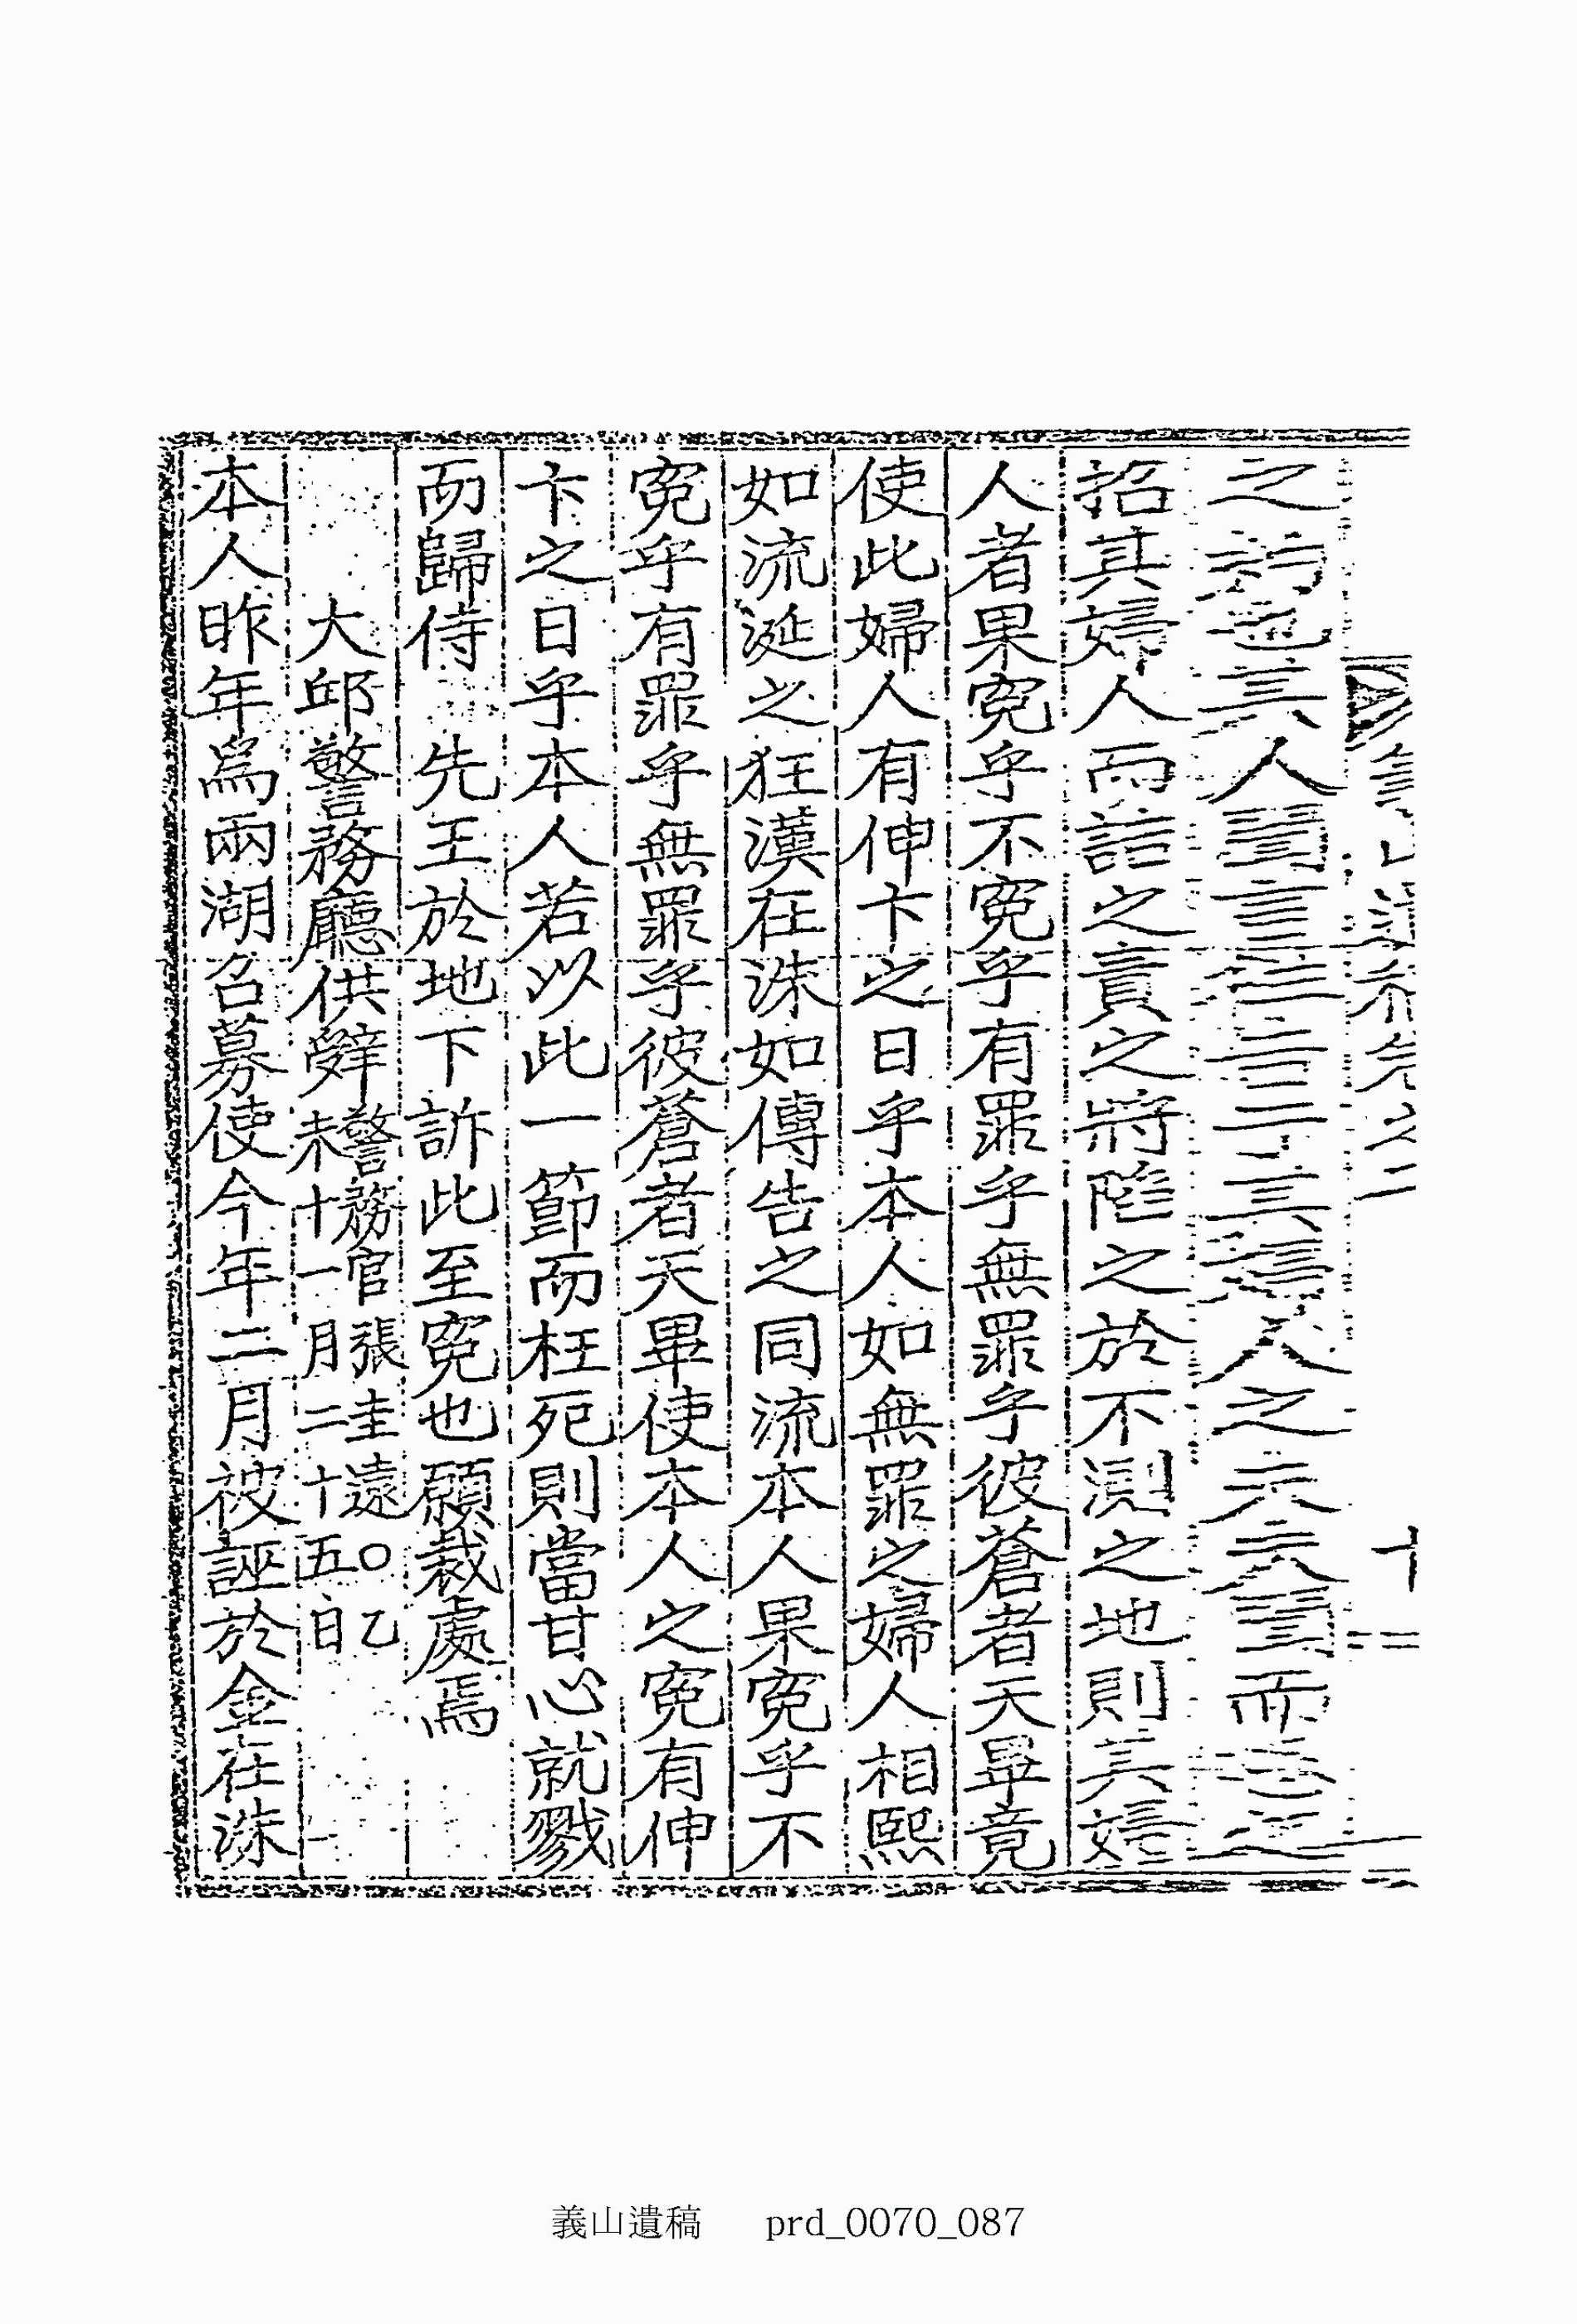 招其婦人而詰之責之將陷之於不測之地則其婦
人者果寃乎不寃乎有罪乎無罪乎彼蒼者天畢竟
使此婦人有伸卞之日乎本人如無罪之婦人相熙
如流涎之狂漢在洙如傳告之同流本人果寃乎不
寃乎有罪乎無罪乎彼蒼者天畢使本人之寃有伸
卞之日乎本人若以此一節而枉死則當甘心就戮
而歸侍 先王於地下訴此至寃也願裁處焉
大邱警務廳供辭 警務官張圭遠○乙
未十一月二十五日
本人昨年爲兩湖召募使今年二月被誣於金在洙
義山遺稿 prd_0070_087